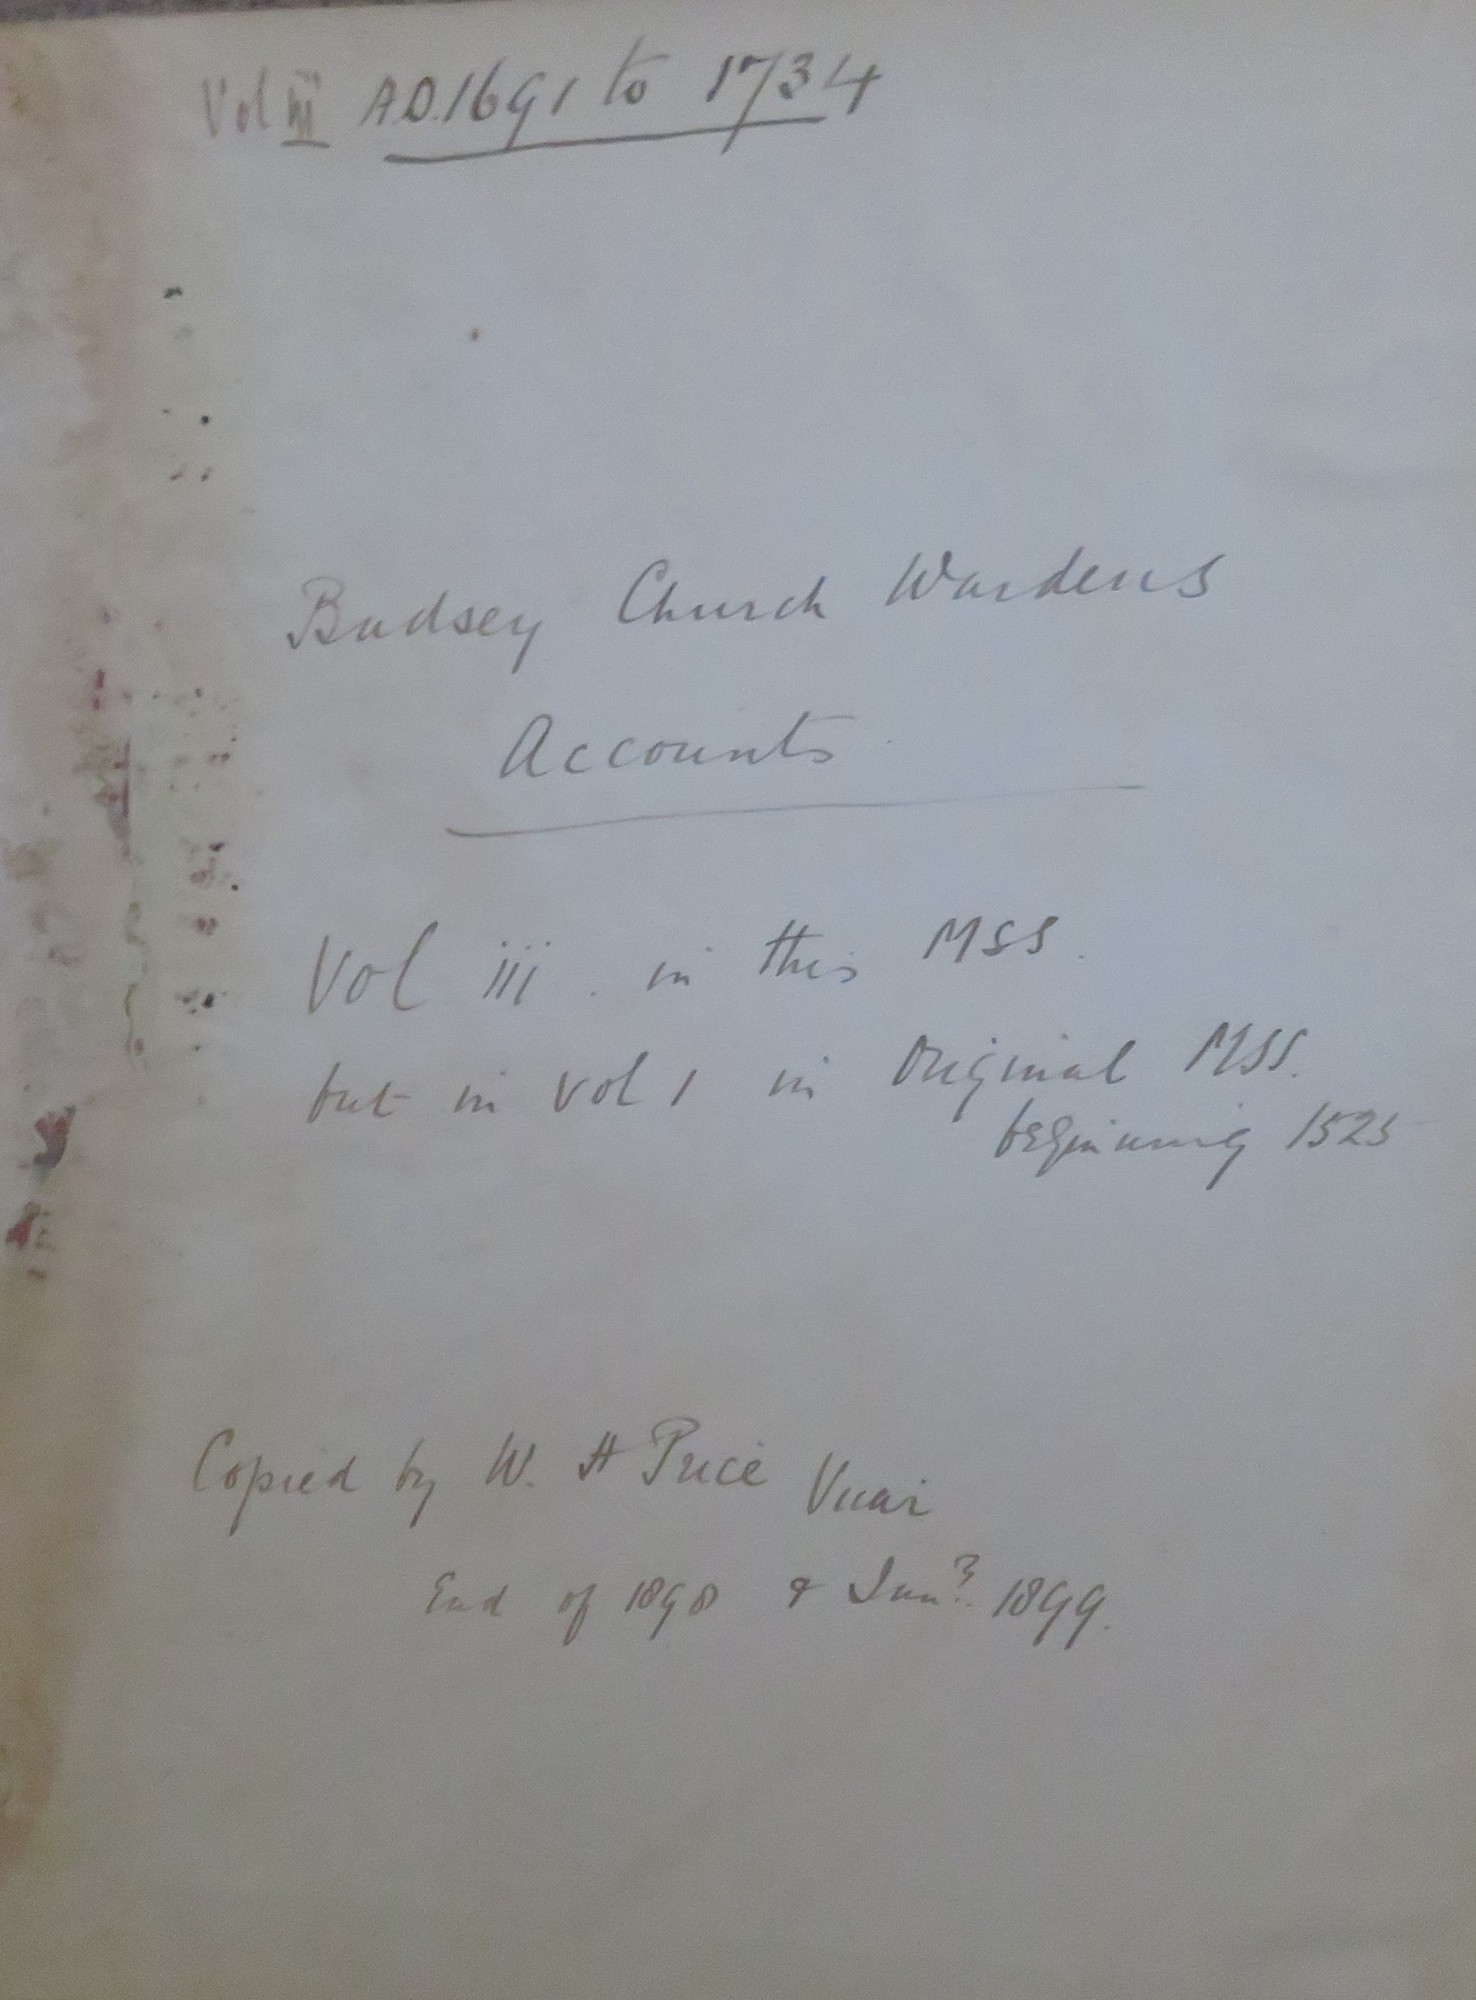 Vol iii A.D. 1691 to 1734
Badsey Church Wardens
Accounts
Vol iii . in this MSS.
but in vol 1 in Original MSS.
beginning 1525
Copied by W. H Price Vicar
End of 1898 & Jany. 1899.